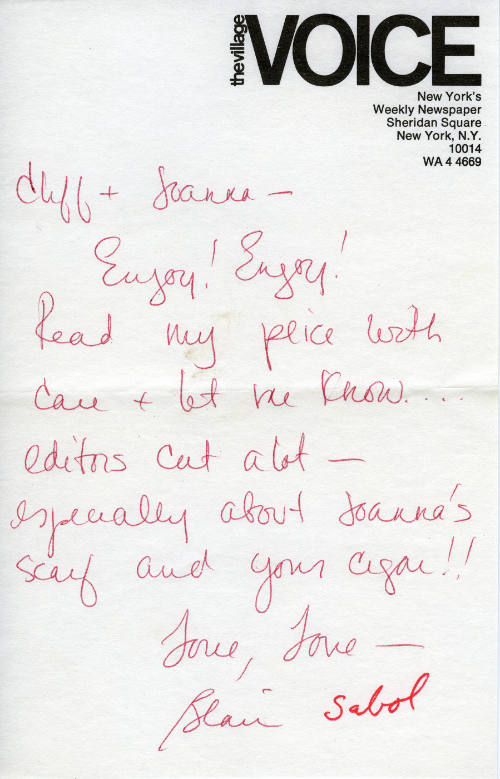 the village VOICE
New York's
Weekly Newspaper
Sheridan Square
New York, N.Y.
10014
WA 4 4669
Cliff + Joanna —
Enjoy! Enjoy!
Read my peice with
care + let me know....
editors cut alot —
especially about Joanna's
scarf and your cigar!!
Love, Love —
Blair Sabol